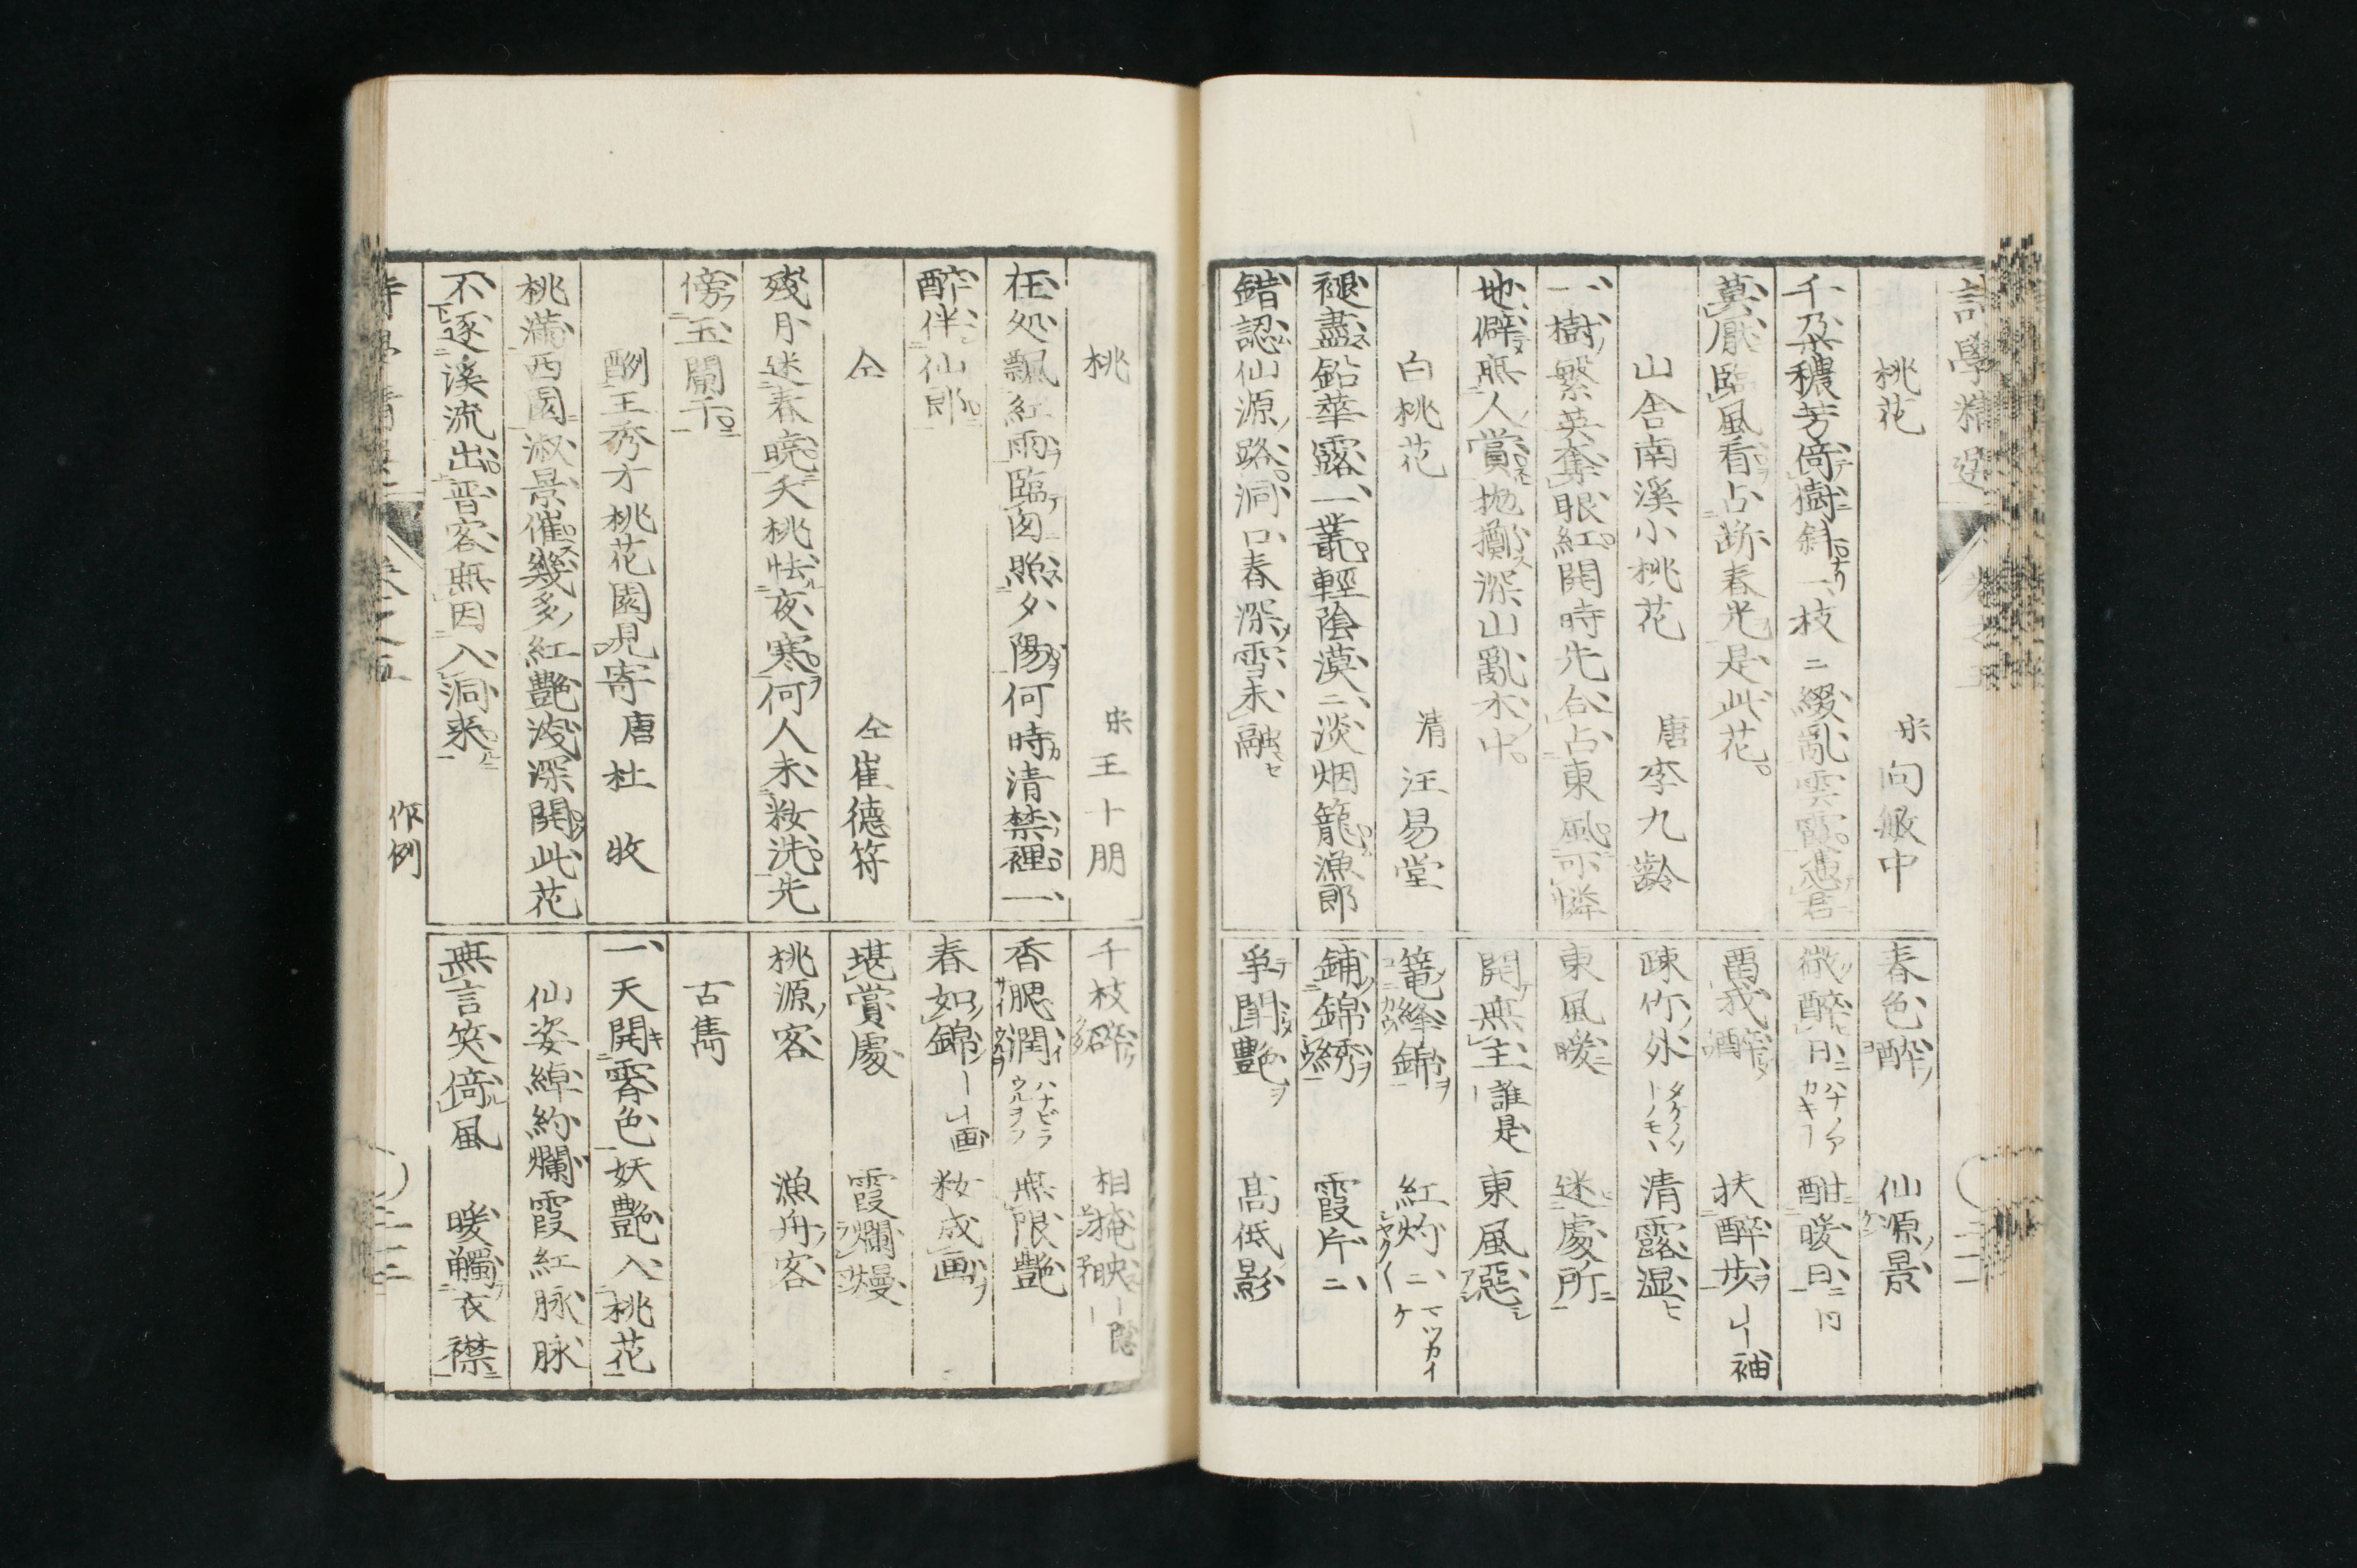 詩學精選 卷之五
桃花 宋 向敏中
千朶穠芳倚樹斜一枝〻綴亂雲霞憑君
莫厭臨風看占断春光是此花
山舍南溪小桃花 唐 李九齡
一樹繁英奪眼紅開時先合占東風可憐
地僻無人賞抛擲深山亂木中
白桃花 清 汪易堂
褪盡鉛華露一叢輕陰漠〻淡烟籠漁郎
錯認仙源路洞口春深雪未融
春色酔 仙源景
微醉日 酣暖日
畱我酔 扶醉歩 袖
疎竹外 清露湿
東風暖 迷處所
開無主 誰是 東風惡
篝絳錦 紅灼〻
鋪錦綉 霞片〻
爭鬪艶 髙低影
桃 宋 王十朋
在処飄紅雨臨囱照夕陽何時清禁裡一
酔伴仙郎
仝 仝 崔德符
残月迷春暁夭桃怯夜寒何人未粧洗先
傍玉闌干
酬王秀才桃花園見寄 唐 杜牧
桃滿西園淑景催幾多紅艷淺深開此花
不逐溪流出晋客無因入洞来
千枝碎 相掩映 隠
香腮潤 ハナビラウルヲフ 無限艷
春如錦 画 粧成画
堪賞處 霞爛熳
桃源客 漁舟客
古雋
一天開霽色妖艷入桃花
仙姿綽約爛霞紅脉脉
無言笑倚風 暖觸衣襟
作例